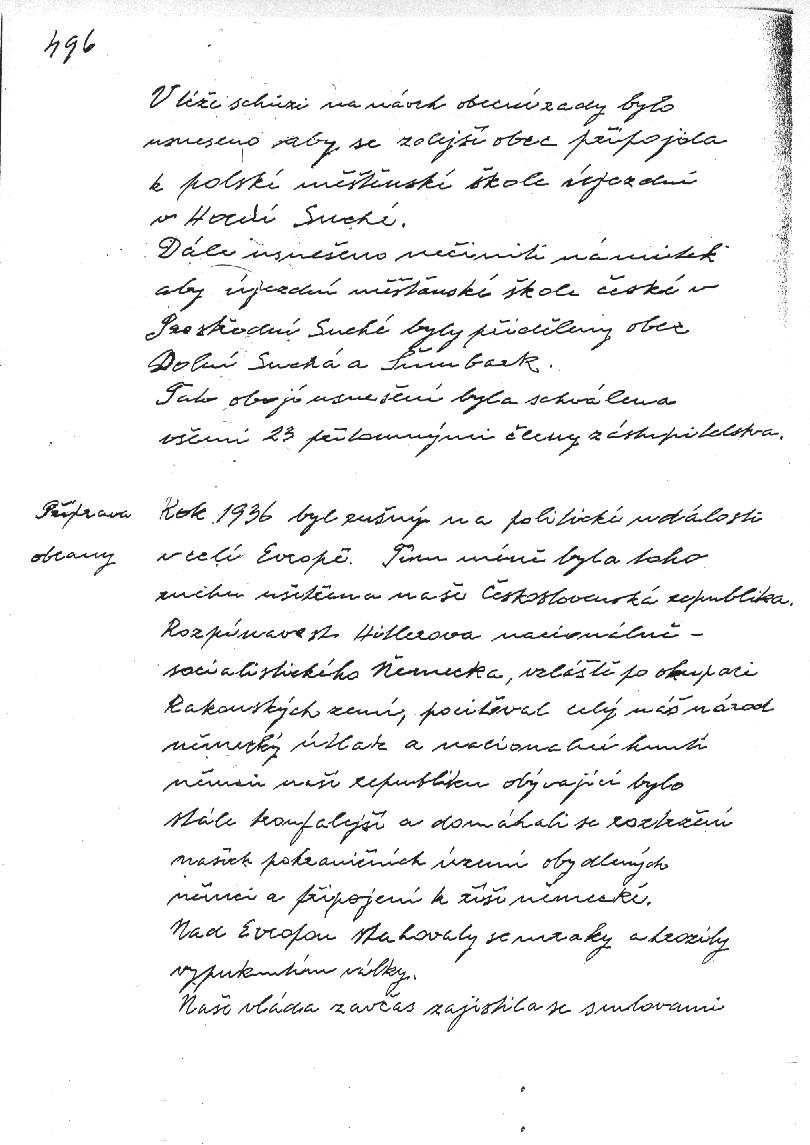 496
V téže schůzi na návrh obecní rady bylo
usneseno aby se zdejší obec připojila
k polské měšťanské škole újezdní
v Horní Suché.
Dále usnešeno nečiniti námitek
aby újezdní měšťanské škole české v
Prostřední Suché byly přiděleny obec
Dolní Suchá a Šumbark.
Tato obojí usnesení byla schválena
všemi 23 přítomnými členy zástupitelstva.
Příprava
obrany
Rok 1936 byl rušný na politické události
v celé Evropě. Tím méně byla toho
ruchu ušetřena naše Československá republika.
Rozpínavost Hitlerova nacionálně-
socialistického Německa, vzláště po okupaci
Rakouských zemí, pociťoval celý náš národ
německý útlak a nacionalní hnutí
němců naší republiku obývající bylo
stále troufalejší a domáhali se roztržení
našich pohraničních území obydlených
němci a připojení k říši německé.
Nad Evropou stahovaly se mraky a hrozily
vypuknutím války.
Naše vláda zavčas zajistila se smlouvami